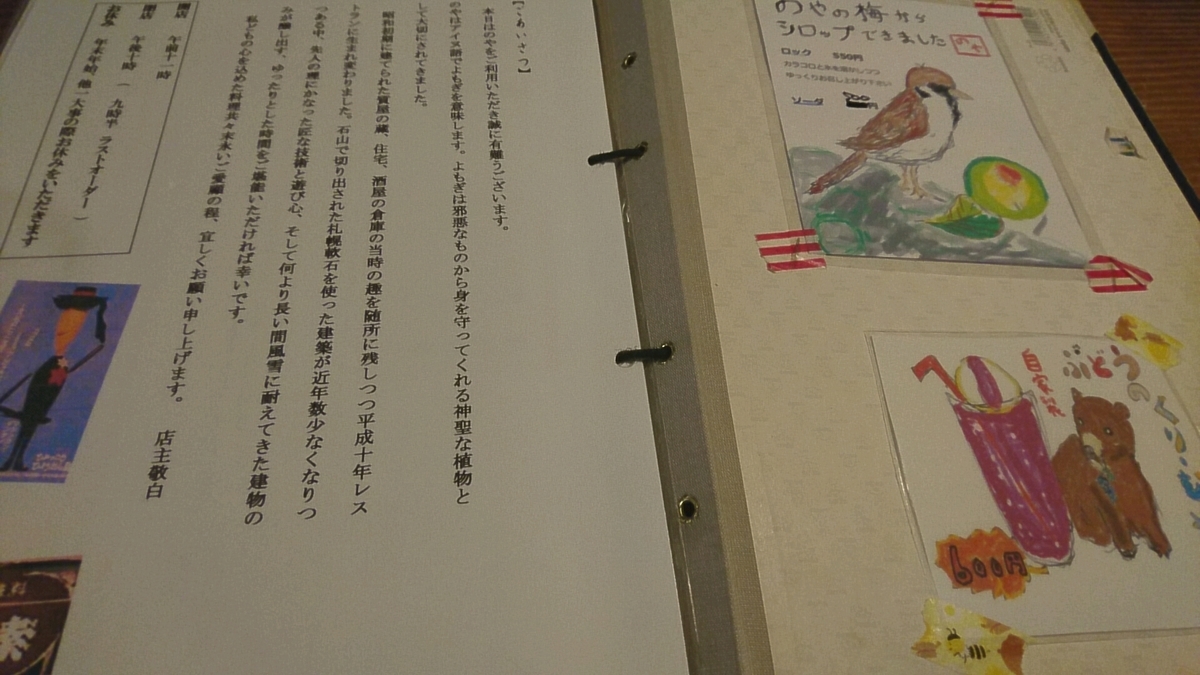 【ごあいさつ】
本日はのやをご利用いただき誠に有難うございます。
のやはアイヌ語でよもぎを意味します。よもぎは邪悪なものから身を守ってくれる神聖な植物と
して大切にされてきました。
昭和初期に建てられた質屋の蔵、住宅、酒屋の倉庫の当時の趣を随所に残しつつ平成十年レス
トランに生まれ変わりました。石山で切り出された札幌軟石を使った建築が近年数少なくなりつ
つある中、先人の理にかなった匠な技術と遊び心、そして何より長い間風雪に耐えてきた建物の
みが醸し出す、ゆったりとした時間をご堪能いただければ幸いです。
私どもの心を込めた料理共々末永いご愛顧の程、宜しくお願い申し上げます。
店主敬白
開店 午前十一時
閉店 午後十時（ 九時半 ラストオーダー ）
お休み 年末年始、他一大事の際お休みをいただきます
のやの梅から
シロップできました
のや
ロック 550円
カラコロと氷を溶かしつつ
ゆっくりお召し上がり下さい
ソーダ
円
自家製
ぶどう
600円